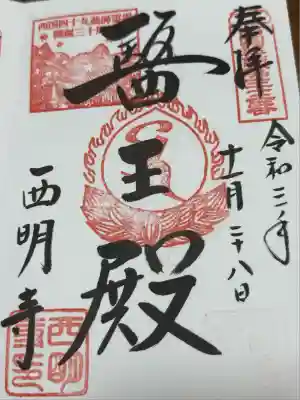 奉拝
令和三年
十一月二十八日
西国四十九薬師霊場
開創三十周年
醫王殿
西明寺